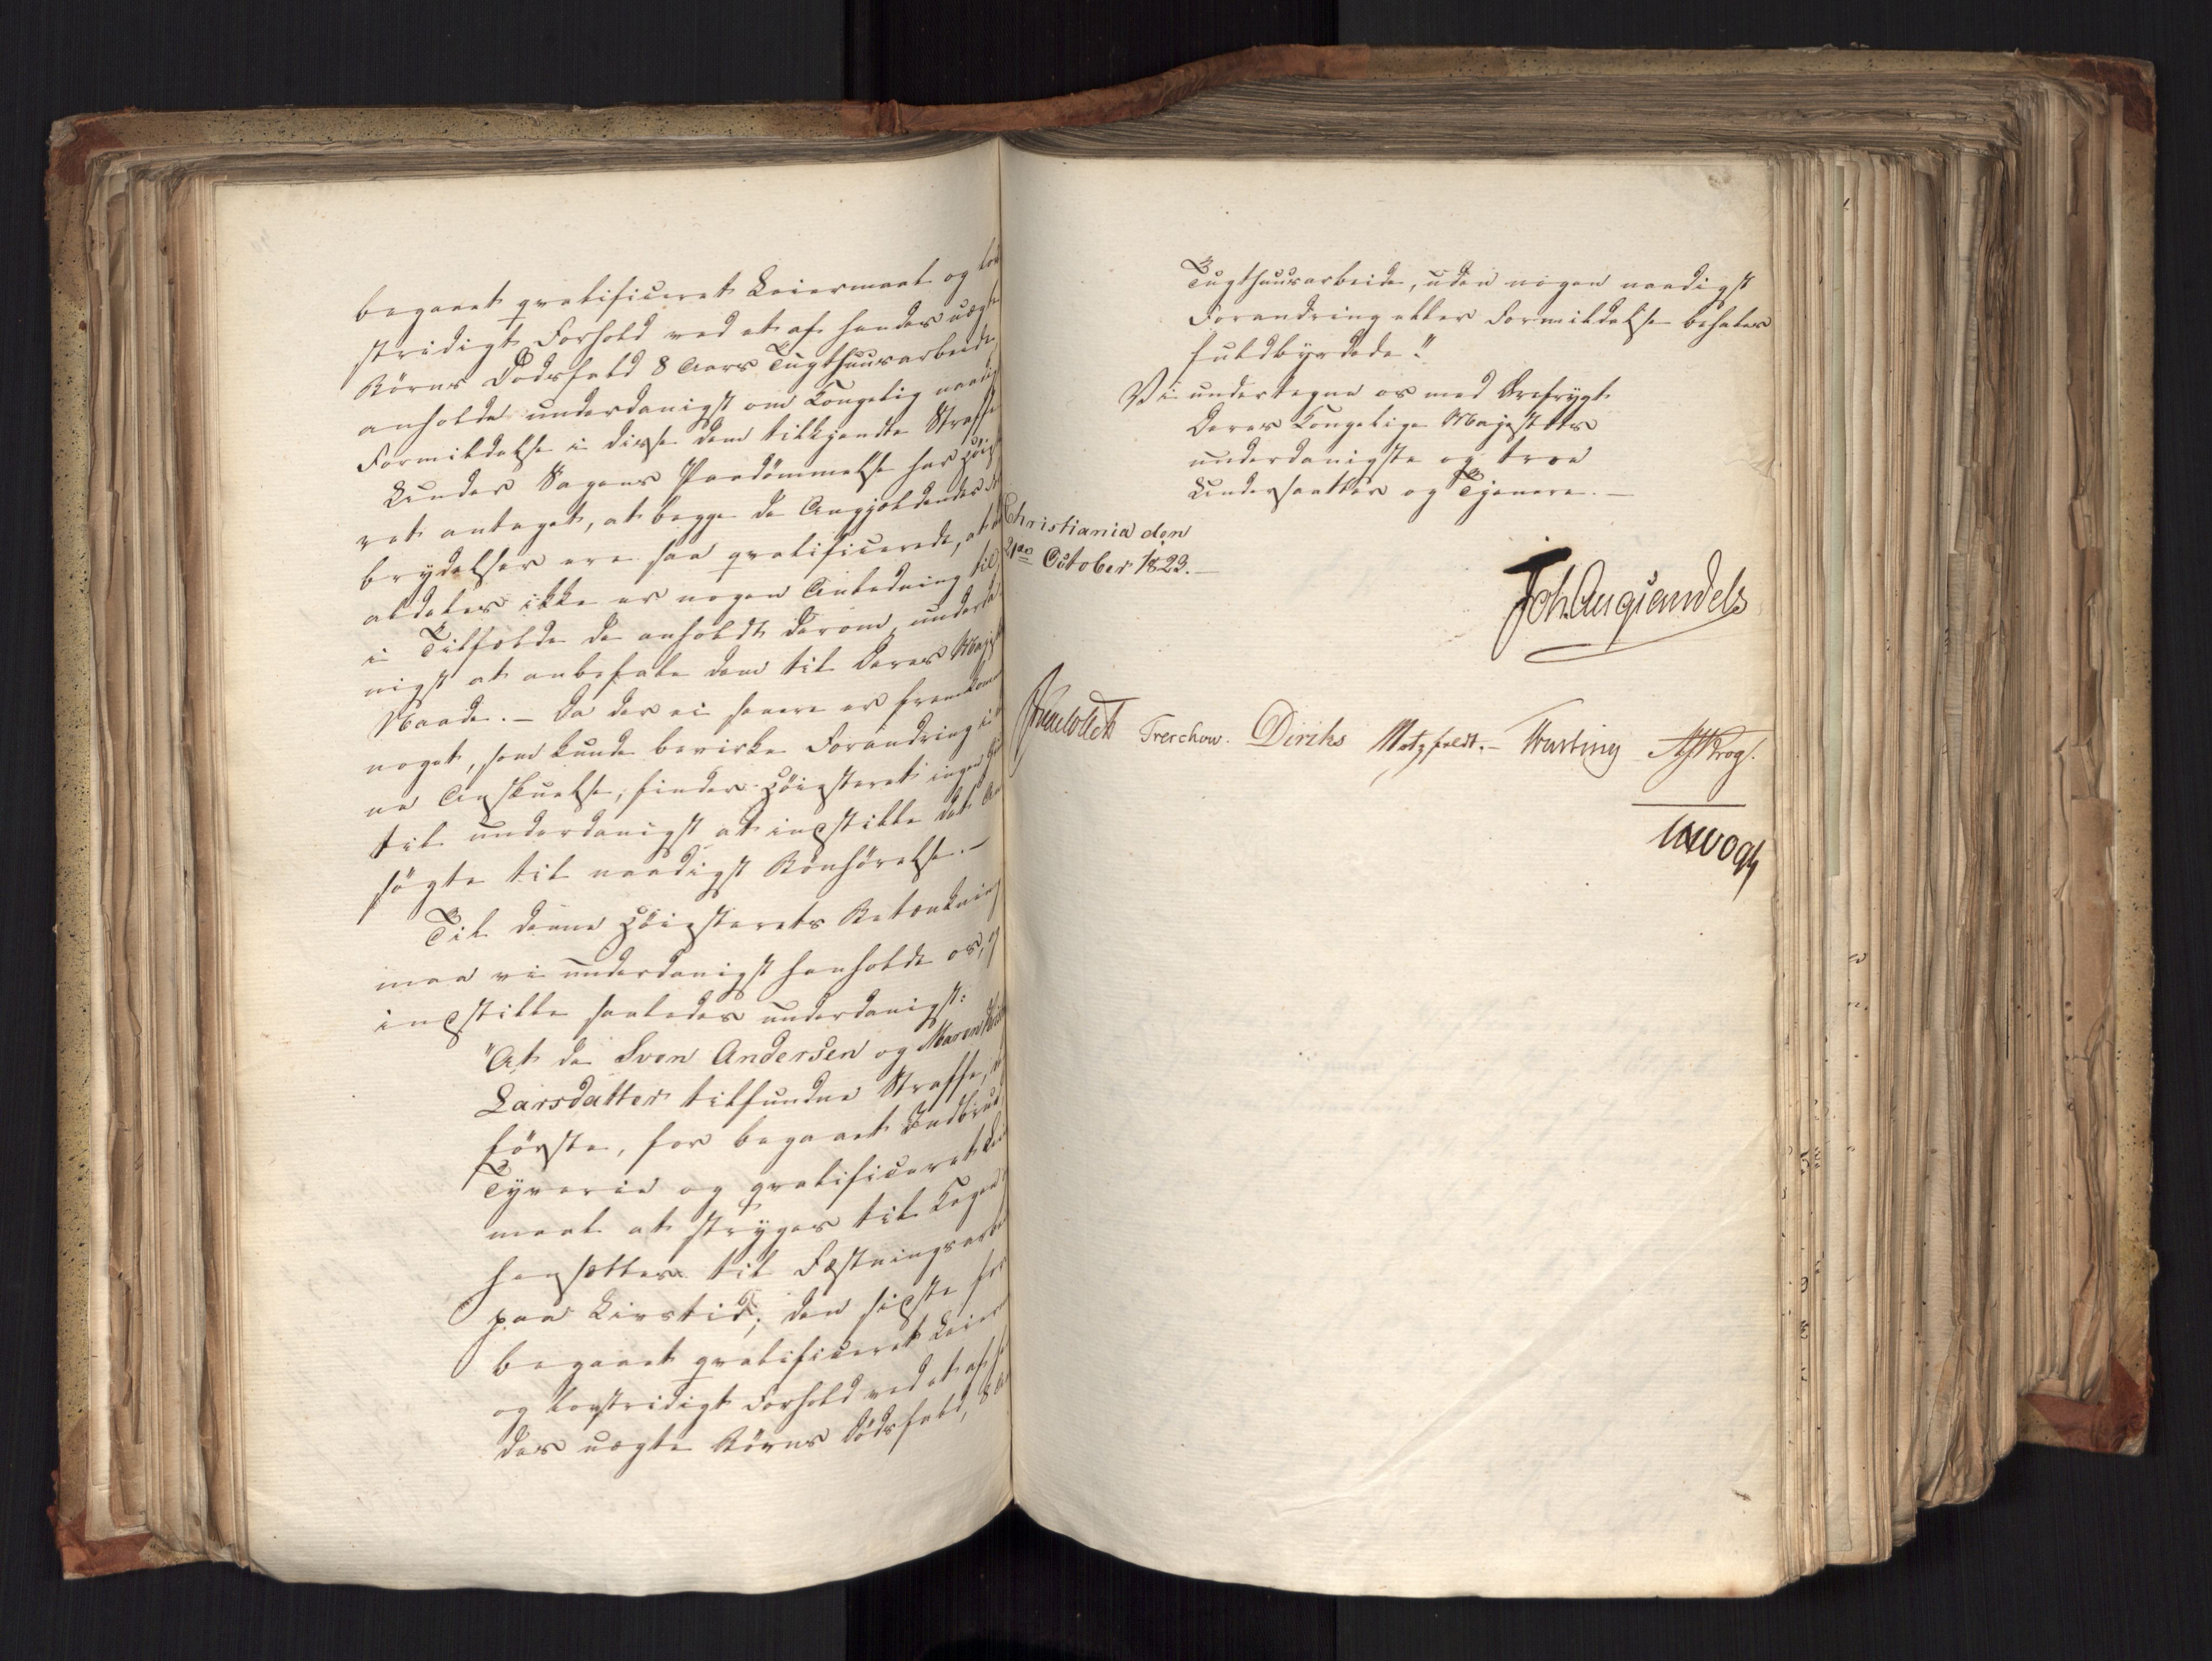 begaaet qvalificeret Leiermaal og lov
stridigt Forhold ved at af hendes uægte
Börns Dödsfald 8 Aars Tugthuusarbeide,
anholde underdanigst om Kongelig naadig
Formildelse i disse dem tilkjendte Straffe
Under Sagens Paadömmelse har Höieste
ret antaget, at begge de Angjældendes For
brydelser ere saa qvalificerede, at der
aldeles ikke er nogen Anledning til,
i Tilfælde de anholdt derom, underda
nigst at anbefale dem til Deres Majestæts
Naade. – Da der ei senere er fremkommet
noget, som kunde bevirke Forandring i den
ne Anskuelse, finder Höiesteret ingen
til underdanigst at indstille det An
sögte til naadigst Bönhörelse. –
Til denne Höiesterets Betænkning
maa vi underdanigst henholde os, og
indstille saaledes underdanigst:
"At de Sven Andersen og Maren
Larsdatter tilfundne Straffe,
förste, for begaaet Indbruds
Tyverie og qvalificeret Leier
maal at stryges til Kagen
hensættes til Fæstningsarbeide
paa Livstid; den sidste for
begaaet qvalificeret Leier
og lovstridigt Forhold ved at af hen
des uægte Börns Dödsfald, 8 Aars
Tugthuusarbeide, uden nogen naadigst
Forandring eller Formildelse befales
fuldbyrdede."
Vi undertegne os med Ærefrygt
Deres Kongelige Majestæts
underdanigste og troe
Undersaatter og Tjenere. –
Christiania den
21de October 1823. –
Joh. Aug. Sandels
Treschow. Diriks Motzfeldt. – Krog.